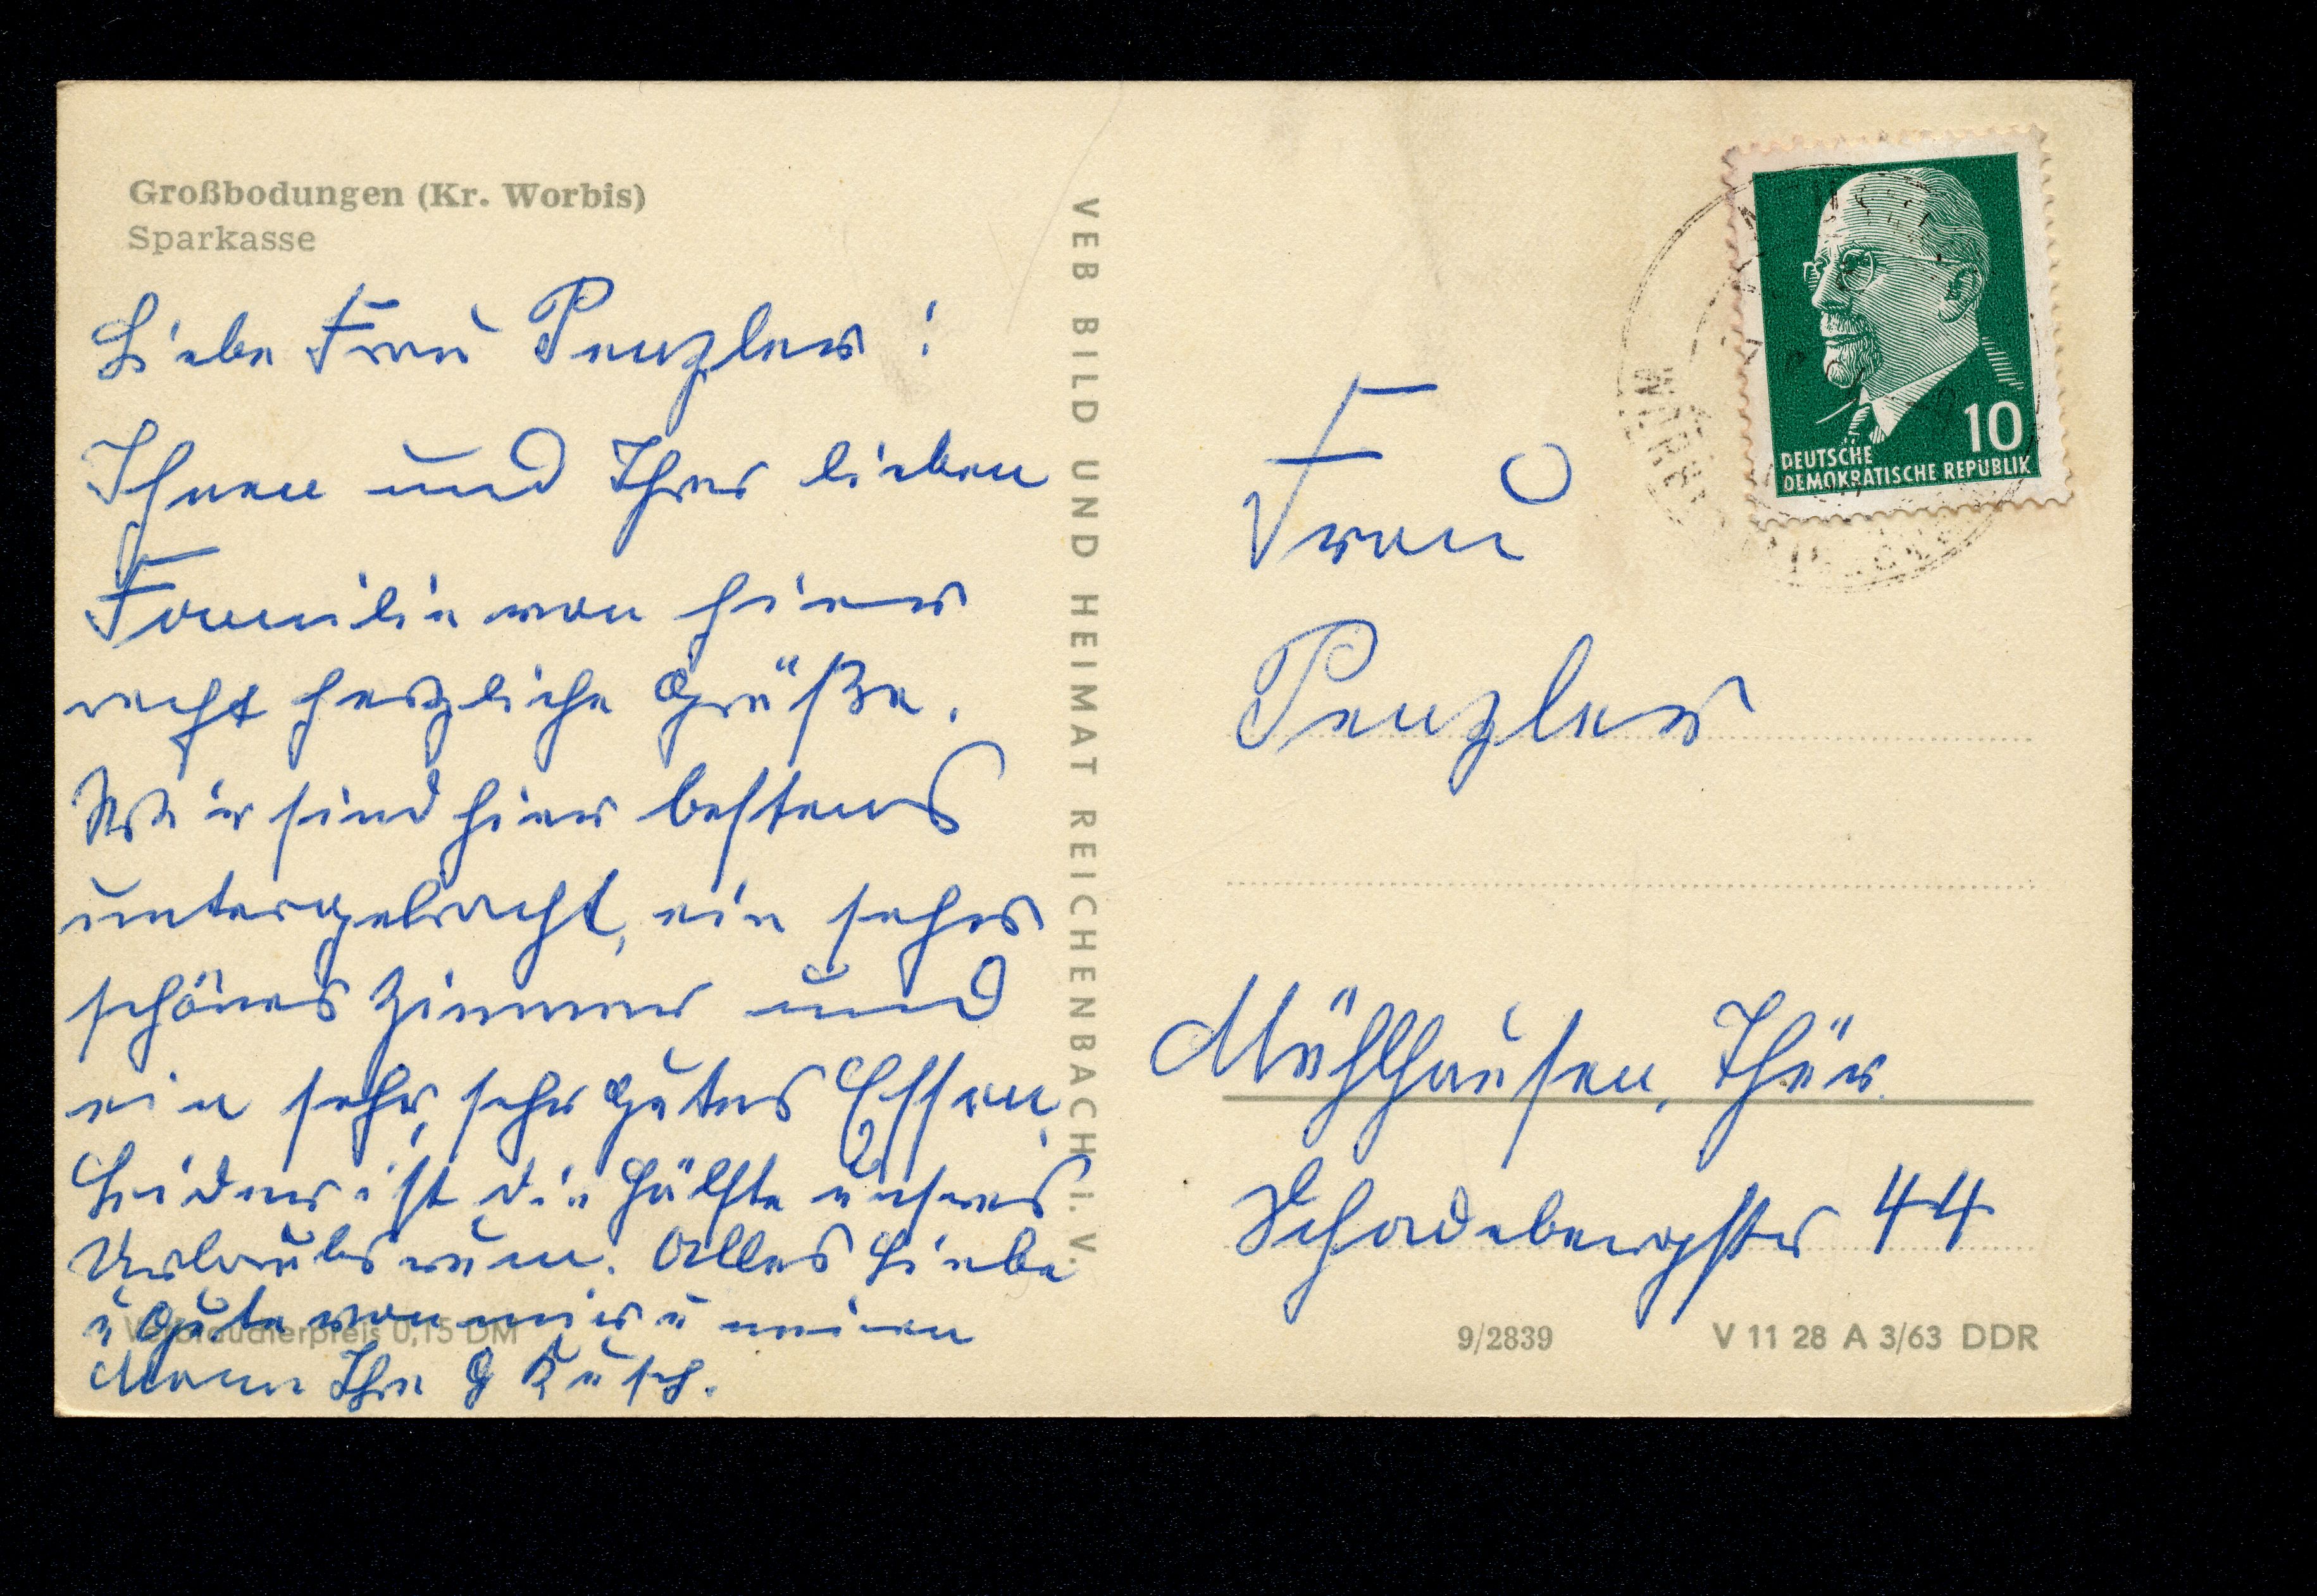 Großbodungen (Kr. Worbis)
Sparkasse
Liebe Frau Penzler!
Ihnen und Ihrer lieben
Familie von hier
recht herzliche Grüße.
Wir sind hier bestens
untergebracht, ein sehr
schönes Zimmer und
ein sehr, sehr gutes Essen.
Leider ist die Hälfte unseres
Urlaubs rum. Alles Liebe
u Gute von mir u meinen
Mann Ihre G Kusch.
Verbraucherpreis 0,15 DM
VEB BILD UND HEIMAT REICHENBACH i. V.
10
DEUTSCHE
DEMOKRATISCHE REPUBLIK
Frau
Penzler
Mühlhausen, Thür.
Schadebergstr 44
9/2839
V 11 28 A 3/63 DDR